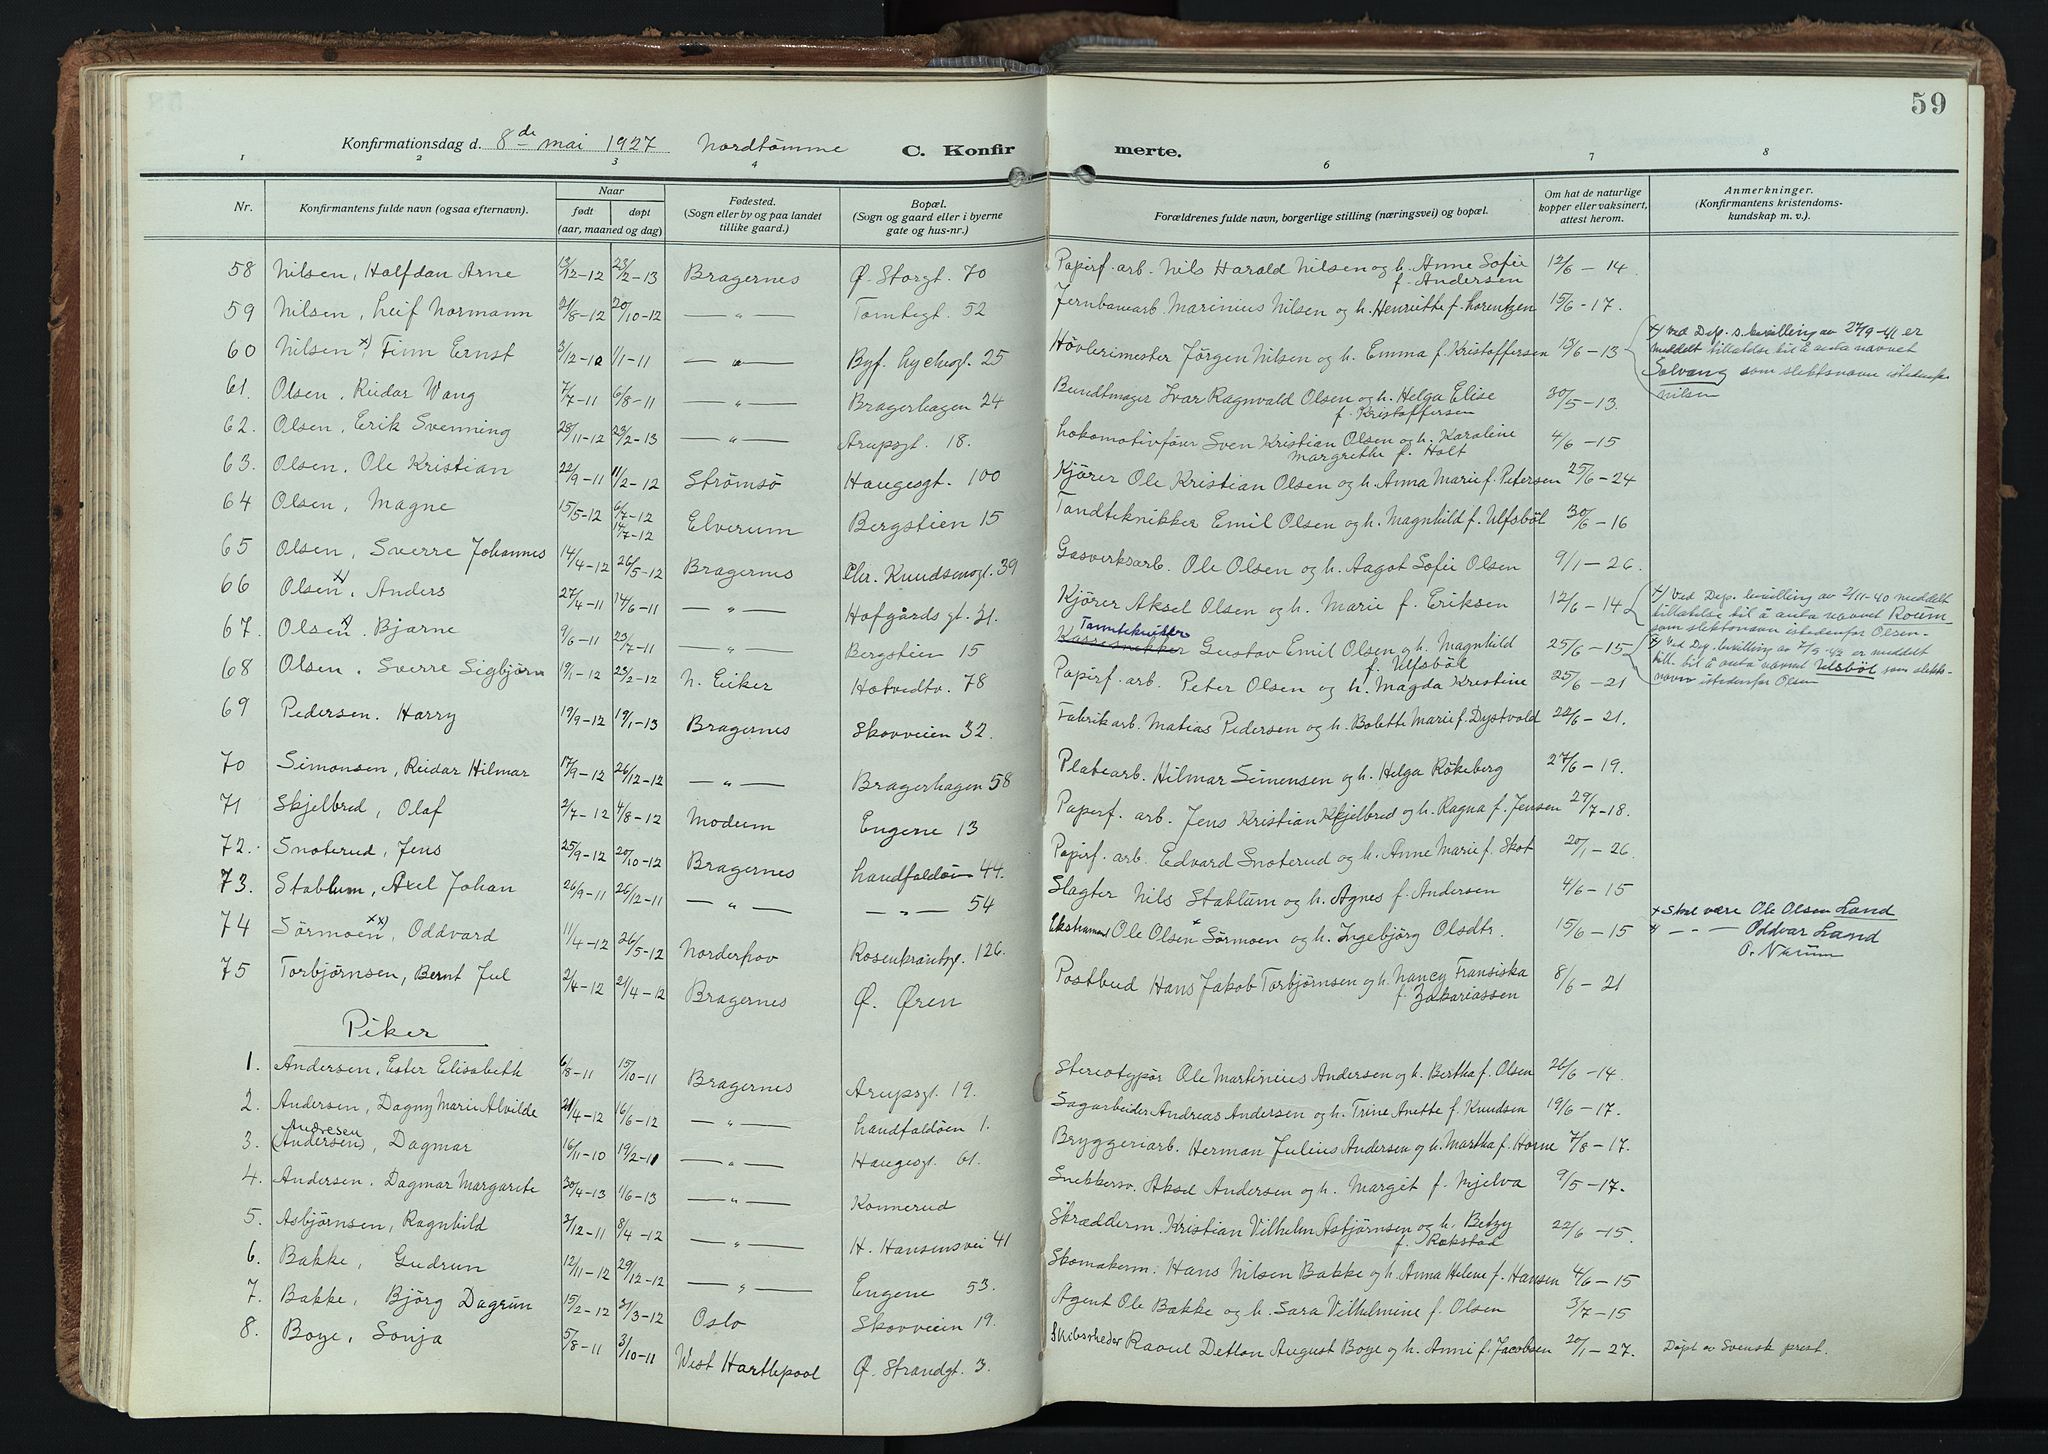 59
Konfirmationsdag d. 8de mai 1927 Nordtömme C. Konfirmerte.
1 2 3 4 6 7 8
Nr. Konfirmantens fulde navn (ogsaa efternavn). Naar født døpt (aar, maaned og dag) Fødested. (Sogn eller by og paa landet tillike gaard.) Bopæl. (Sogn og gaard eller i byerne gate og hus-nr.) Forældrenes fulde navn, borgerlige stilling (næringsvei) og bopæl. Om hat de naturlige kopper eller vaksinert, attest herom. Anmerkninger. (Konfirmantens kristendoms-kundskap m. v.).
58 Nilsen, Halfdan Arne 13/12-12 23/2-13 Bragernes Ø. Storgt. 70 Papirf. arb. Nils Harald Nilsen og h. Anne Sofie f. Andersen 12/6-14
59 Nilsen, Leif Normann 21/8-12 20/10-12 — " — Tomtegt. 52 Jernbanearb. Marinius Nilsen og h. Henriette f. Lorentzen 15/6-17.
60 Nilsen x) Finn Ernst 3/12-10 1/1-11 — " — Byf. Lychesgt. 25 Hövlerimester Jörgen Nilsen og h. Emma f. Kristoffersen 13/6-13 x) Ved Dep.s bevilling av 27/9-41 er meddelt tillatelse til å anta navnet Solvang som slektsnavn istedenfor Nilsen
61. Olsen, Reidar Wang 7/7-11 6/8-11 — " — Bragerhagen 24 Bundtmager Ivar Ragnvald Olsen og h. Helga Elise f. Kristoffersen 30/5-13.
62. Olsen, Erik Svenning 28/11-12 23/2-13 — " — Arupsgt. 18. Lokomotivfører Sven Kristian Olsen og h. Karoline Margrethe f. Holt 4/6-15
63. Olsen, Ole Kristian 22/9-11 11/2-12 Strömsö Haugesgt. 100 Kjörer Ole Kristian Olsen og h. Anna Marie f. Petersen 25/6-24
64 Olsen, Magne 15/5-12 6/7-12 14/7-12 Elverum Bergstien 15 Tandteknikker Emil Olsen og h. Magnhild f. Ulfsböl 30/6-16
65 Olsen, Sverre Johannes 14/4-12 26/5-12 Bragernes Chr. Knudsensgt. 39 Gasverksarb. Ole Olsen og h. Aagot Sofie Olsen 9/1-26.
66 Olsen x), Anders 27/4-11 14/6-11 — " — Hofgårdsgt. 31. Kjörer Aksel Olsen og h. Marie f. Eriksen 12/6-14 x) Ved Dep. bevilling av 2/11-40 meddelt tillatelse til å anta navnet Roum som slektsnavn istedenfor Olsen.
67. Olsen x) Bjarne 9/6-11 23/7-11 — " — Bergstien 15 Tanntekniker Gustav Emil Olsen og h. Magnhild f. Ulfsböl 25/6-15 x) Ved Dep. bevilling av 7/3-42 er meddelt till. til å anta navnet Ulsböl som slektsnavn istedenfor Olsen
68 Olsen, Sverre Sigbjörn 19/1-12 23/2-12 N. Eiker Hotvedtv. 78 Papirf. arb. Peter Olsen og h. Magda Kristine 25/6-21
69 Pedersen. Harry 19/9-12 19/1-13 Bragernes Skovveien 32. Fabrikarb. Matias Pedersen og h. Bolette Marie f. Dystvold 22/6-21.
70 Simonsen, Reidar Hilmar 17/9-12 26/12-12 — " — Bragerhagen 58 Platearb. Hilmar Simensen og h. Helga Rökeberg 27/6-19.
71 Skjelbred, Olaf 2/7-12 4/8-12 Modum Engene 13 Papirf. arb. Jens Kristian Skjelbred og h. Ragna f. Jensen 29/7-18.
72. Snoterud, Jens 25/9-12 20/10-12 Bragernes Landfaldöen 44. Papirf. arb. Edvard Snoterud og h. Anne Marie f. Skot 20/1-26.
73. Stablum, Axel Johan 26/9-11 26/12-11 — " — — " — 54 Slagter Nils Stablum og h. Agnes f. Andersen 4/6-15
74 Sörmoen xx), Oddvard 11/4-12 26/5-12 Norderhov Rosenkrantzgt. 126. Ekstramand Ole Olsen x Sörmoen og h. Ingebjörg Olsdtr. 15/6-15 x Skal være Ole Olsen Land
" — — Oddvar Land
O. Narum
75 Torbjørnsen, Bernt Jul 2/4-12 21/4-12 Bragernes Ø. Øren Postbud Hans Jakob Torbjørnsen og h. Nancy Fransiska f. Zakariassen 8/6-21
Piker
1. Andersen, Ester Elisabeth 6/8-11 15/10-11 Bragernes Arupsgt. 19. Stereotypör Ole Martinius Andersen og h. Bertha f. Olsen 26/6-14.
2. Andersen, Dagny Marie Alvilde 21/4-12 16/6-12 — " — Landfaldöen 1. Sagarbeider Andreas Andersen og h. Trine Anette f. Knudsen 19/6-17.
3. Andresen (Andersen), Dagmar 16/11-10 19/2-11 — " — Haugesgt. 61. Bryggeriarb. Herman Julius Andersen og h. Martha f. Horne 7/8-17.
4. Andersen. Dagmar Margarete 30/4-13 1/6-13 — " — Konnerud Snekkersv. Aksel Andersen og h. Margit f. Mjelva 9/5-17.
5. Asbjørnsen, Ragnhild 2/12-11 8/4-12 — " — H. Hansensvei 41 Skrædderm. Kristian Vilhelm Asbjørnsen og h. Betzy f. Rokstad 22/6-15.
6. Bakke, Gudrun 12/11-12 29/12-12 — " — Engene 53. Skomakerm. Hans Nilsen Bakke og h. Anna Helene f. Hansen 4/6-15
7. Bakke, Bjørg Dagrun 15/2-12 31/3-12 Oslo Skovveien 19. Agent Ole Bakke og h. Sara Vilhelmine f. Olsen 3/7-15
8. Boye, Sonja 5/8-11 3/10-11 West Hartlepool Ø. Strandgt. 3. Skibsrheder Raoul Detlon August Boye og h. Anni f. Jacobsen 20/1-27. Døpt av Svensk prest.